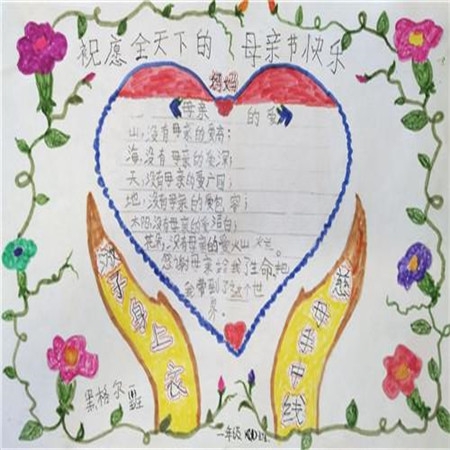 祝愿全天下的 母亲节快乐
妈妈
《母亲 的爱》
山,没有母亲的爱高;
海,没有母亲的爱深;
天,没有母亲的爱广阔;
地,没有母亲的爱包容;
太阳,没有母亲的爱温白;
花朵,没有母亲的爱火山
感谢母亲给我了生命,把
我带到了这个世
界。
游子身上衣
慈母手中线
黑格尔 班
一年级